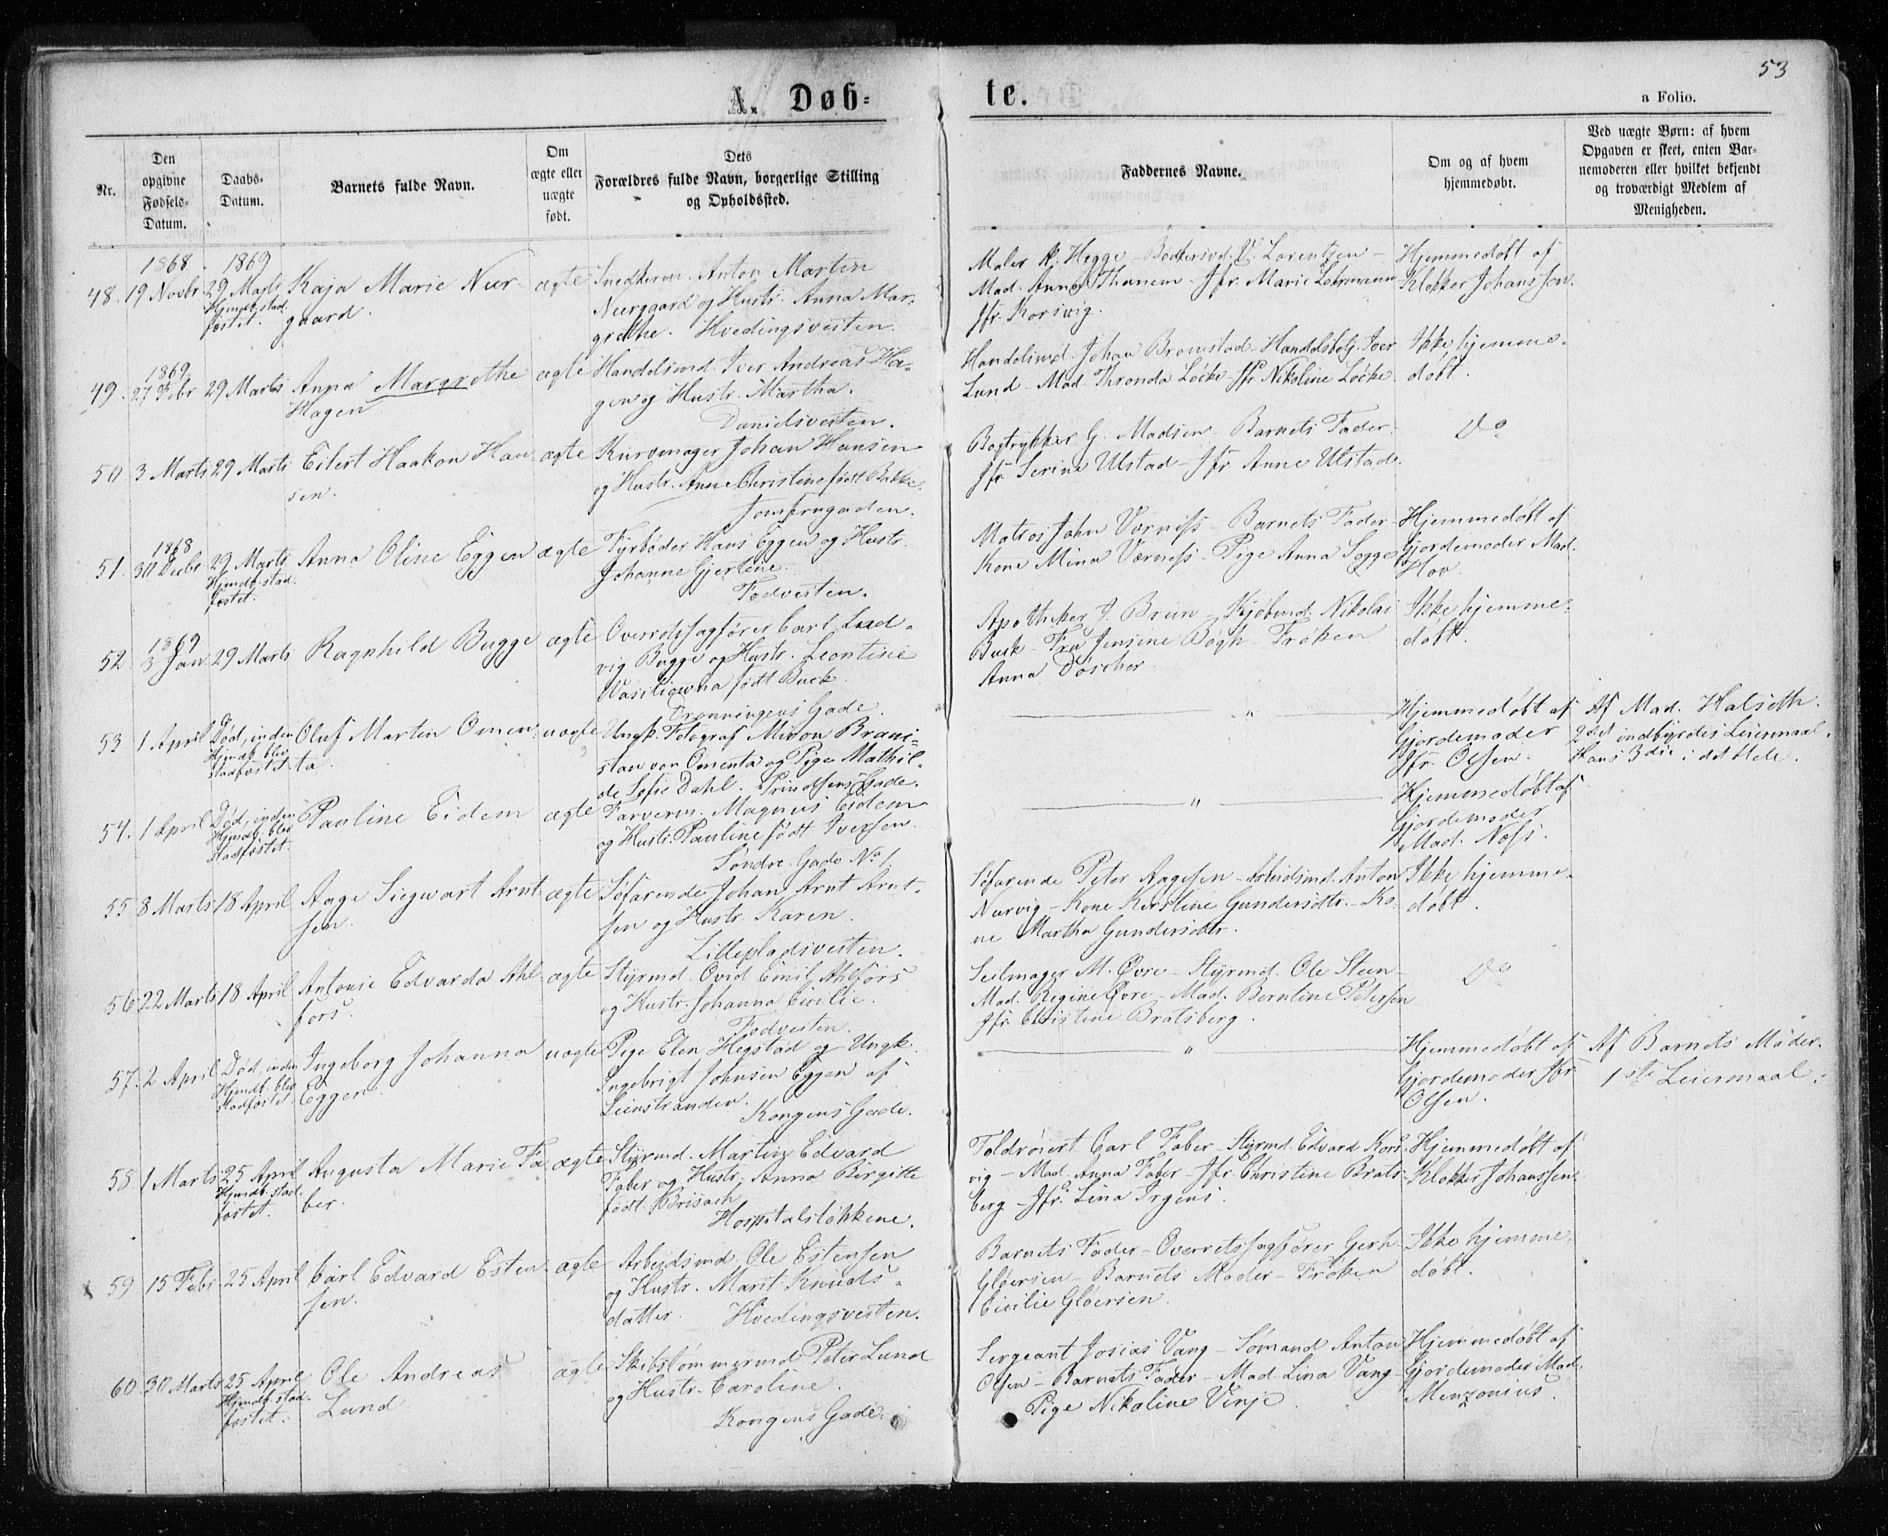 53
A. Døb-
te.
a Folio.
Nr.
Den opgivne Fødsels-Datum.
Daabs-Datum.
Barnets fulde Navn.
Om ægte eller uægte født.
Dets Forældres fulde Navn, borgerlige Stilling og Opholdssted.
Faddernes Navne.
Om og af hvem hjemmedøbt.
Ved uægte Børn: af hvem Opgaven er skeet, enten Barnemoderen eller hvilket bekjendt og troværdigt Medlem af Menigheden.
1868 1869
48. 19 Novbr 29 Marts Kaja Marie Neer- ægte Snedkerm. Anton Martin
Hjmdb. stad- gaard. Neergaard og Hustr. Anna Mar-
fæstet. grethe. Hvedingsvesten.
Maler A. Hegge - Bødkersvd. V. Lorentzen -
Mad. Anna Thanem - Jfr. Marie Lehrmann
Jfr. Korsvig.
Hjemmedøbt af
Klokker Johanssen.
1869
49. 27 Febr 29 Marts Anna Margrethe ægte Handelsmd. Iver Andreas Ha-
Hagen gen og Hustr. Martha.
Danielsvesten.
Handelsmd. Johan Bromstad - Handelsbetj. Iver
Lund - Mad. Thronda Løcke - Jfr. Nikoline Løcke.
Ikke hjemme-
døbt.
50 3 Marts 29 Marts Eilert Haakon Han- ægte Kurvmager Johan Hansen
sen. og Hustr. Anne Christine født Bakke.
Jomfrugaden.
Bogtrykker G. Madsen - Barnets Fader.
Jfr. Serine Ulstad - Jfr. Anne Ulstad.
Do
1868
51. 30 Decbr 29 Marts Anna Oline Eggen ægte Fyrbøder Hans Eggen og Hustr.
Hjmdb. stad- Johanne Gjertine.
fæstet. Fodvesten.
Matros John Værness - Barnets Fader -
Kone Mina Værness - Pige Anna Sogge
Hjemmedøbt af
Gjordemoder Mad.
Hov.
1869
52. 3 Jan 29 Marts Ragnhild Bugge ægte Overretssagfører Carl Lud-
vig Bugge og Hustr. Leontine
Wasiliewna født Buck.
Dronningens Gade.
Apotheker J. Bruun - Kjøbmd. Nikolai
Buck - Fru Jensine Bøgh - Frøken
Anna Døscher.
Ikke hjemme-
døbt.
53 1 April Død, inden Oluf Martin Omen- uægte Ungk. Fotograf Miron Brani-
Hjmdb. blev ta. slav von Omenta og Pige Mathil-
stadfæstet de Sofie Dahl. Prindsens Gade.
"
Hjemmedøbt af
Gjordemoder
Jfr. Olsen.
Af Mad. Halseth.
2det indbyrdes Leiermaal.
Hans 3die i det Hele.
54. 1 April Død, inden Pauline Eidem ægte Farverm. Magnus Eidem
Hjmdb. blev og Hustr. Pauline født Iversen
stadfæstet. Søndre Gade No 1.
"
Hjemmedøbt af
Gjordemoder
Mad. Næss.
55 8 Marts 18 April Aage Siegwart Arnt- ægte Søfarende Johan Arnt Arnt-
sen. sen og Hustr. Karen.
Lillepladsvesten.
Søfarende Peter Aagesen - Arbeidsmd. Anton
Nervig - Kone Kerstine Gundersdtr. - Ko-
ne Martha Gundersdtr.
Ikke hjemme-
døbt.
56 22 Marts 18 April Antonie Edvarda Ahl- ægte Styrmd. Ovid Emil Ahlfors
fors. og Hustr. Johanna Cecilie.
Fodvesten.
Seilmager M. Øvre - Styrmd. Ole Steen -
Mad. Regine Øvre - Mad. Berntine Petersen
Jfr. Christine Bratsberg.
Do
57. 2 April Død, inden Ingeborg Johanna uægte Pige Elen Hegstad og Ungk.
Hjmdb. blev Eggen. Ingebrigt Johnsen Eggen af
stadfæstet. Leinstranden.
Kongens Gade.
"
Hjemmedøbt af
Gjordemoder Jfr.
Olsen.
Af Barnets Moder.
1ste Leiermaal.
58 1 Marts 25 April Augusta Marie Fa- ægte Styrmd. Martin Edvard
Hjmdb. stad- ber. Faber og Hustr. Anna Birgitte
fæstet. født Brisach
Hospitalsløkkene.
Toldroiert Carl Faber - Styrmd. Edvard Kors-
vig - Mad. Anna Faber - Jfr. Christine Brats-
berg - Jfr. Lina Irgens.
Hjemmedøbt af
Klokker Johanssen.
59 15 Febr 25 April Carl Edvard Esten- ægte Arbeidsmd. Ole Estensen
sen. og Hustr. Marit Knuds-
datter. Hvedingsvesten.
Barnets Fader - Overretssagfører Gerh.
Gløersen - Barnets Moder - Frøken
Cecilie Gløersen.
Ikke hjemme-
døbt.
60 30 Marts 25 April Ole Andreas ægte Skibstømmermd. Peter Lund
Hjmdb. stad- Lund og Hustr. Caroline.
fæstet. Kongens Gade.
Sergeant Josias Vang - Sømand Anton
Olsen - Barnets Fader - Mad. Lina Vang -
Pige Nikoline Vinje.
Hjemmedøbt af
Gjordemoder Mad.
Menzonius.